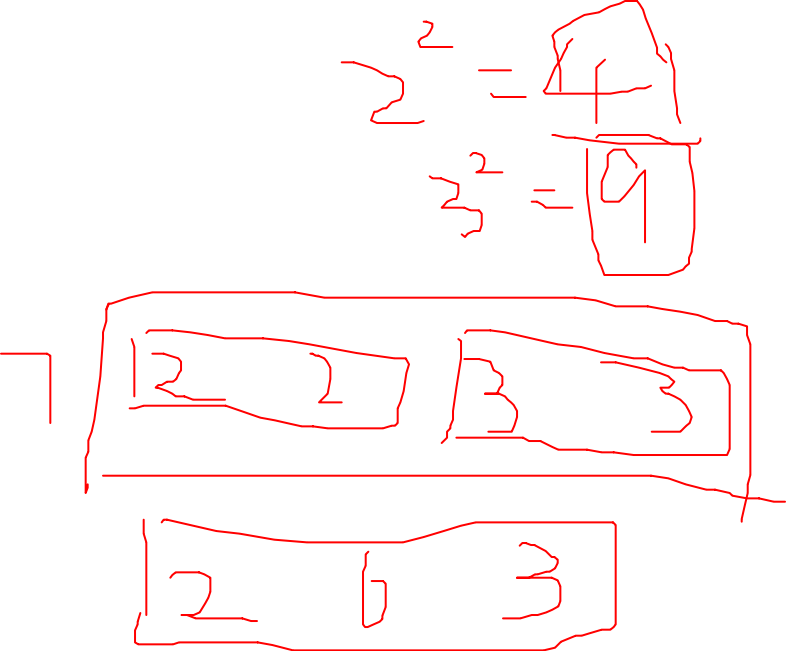 2² = 4
3² = 9
7 2 2 3 3
2 6 3